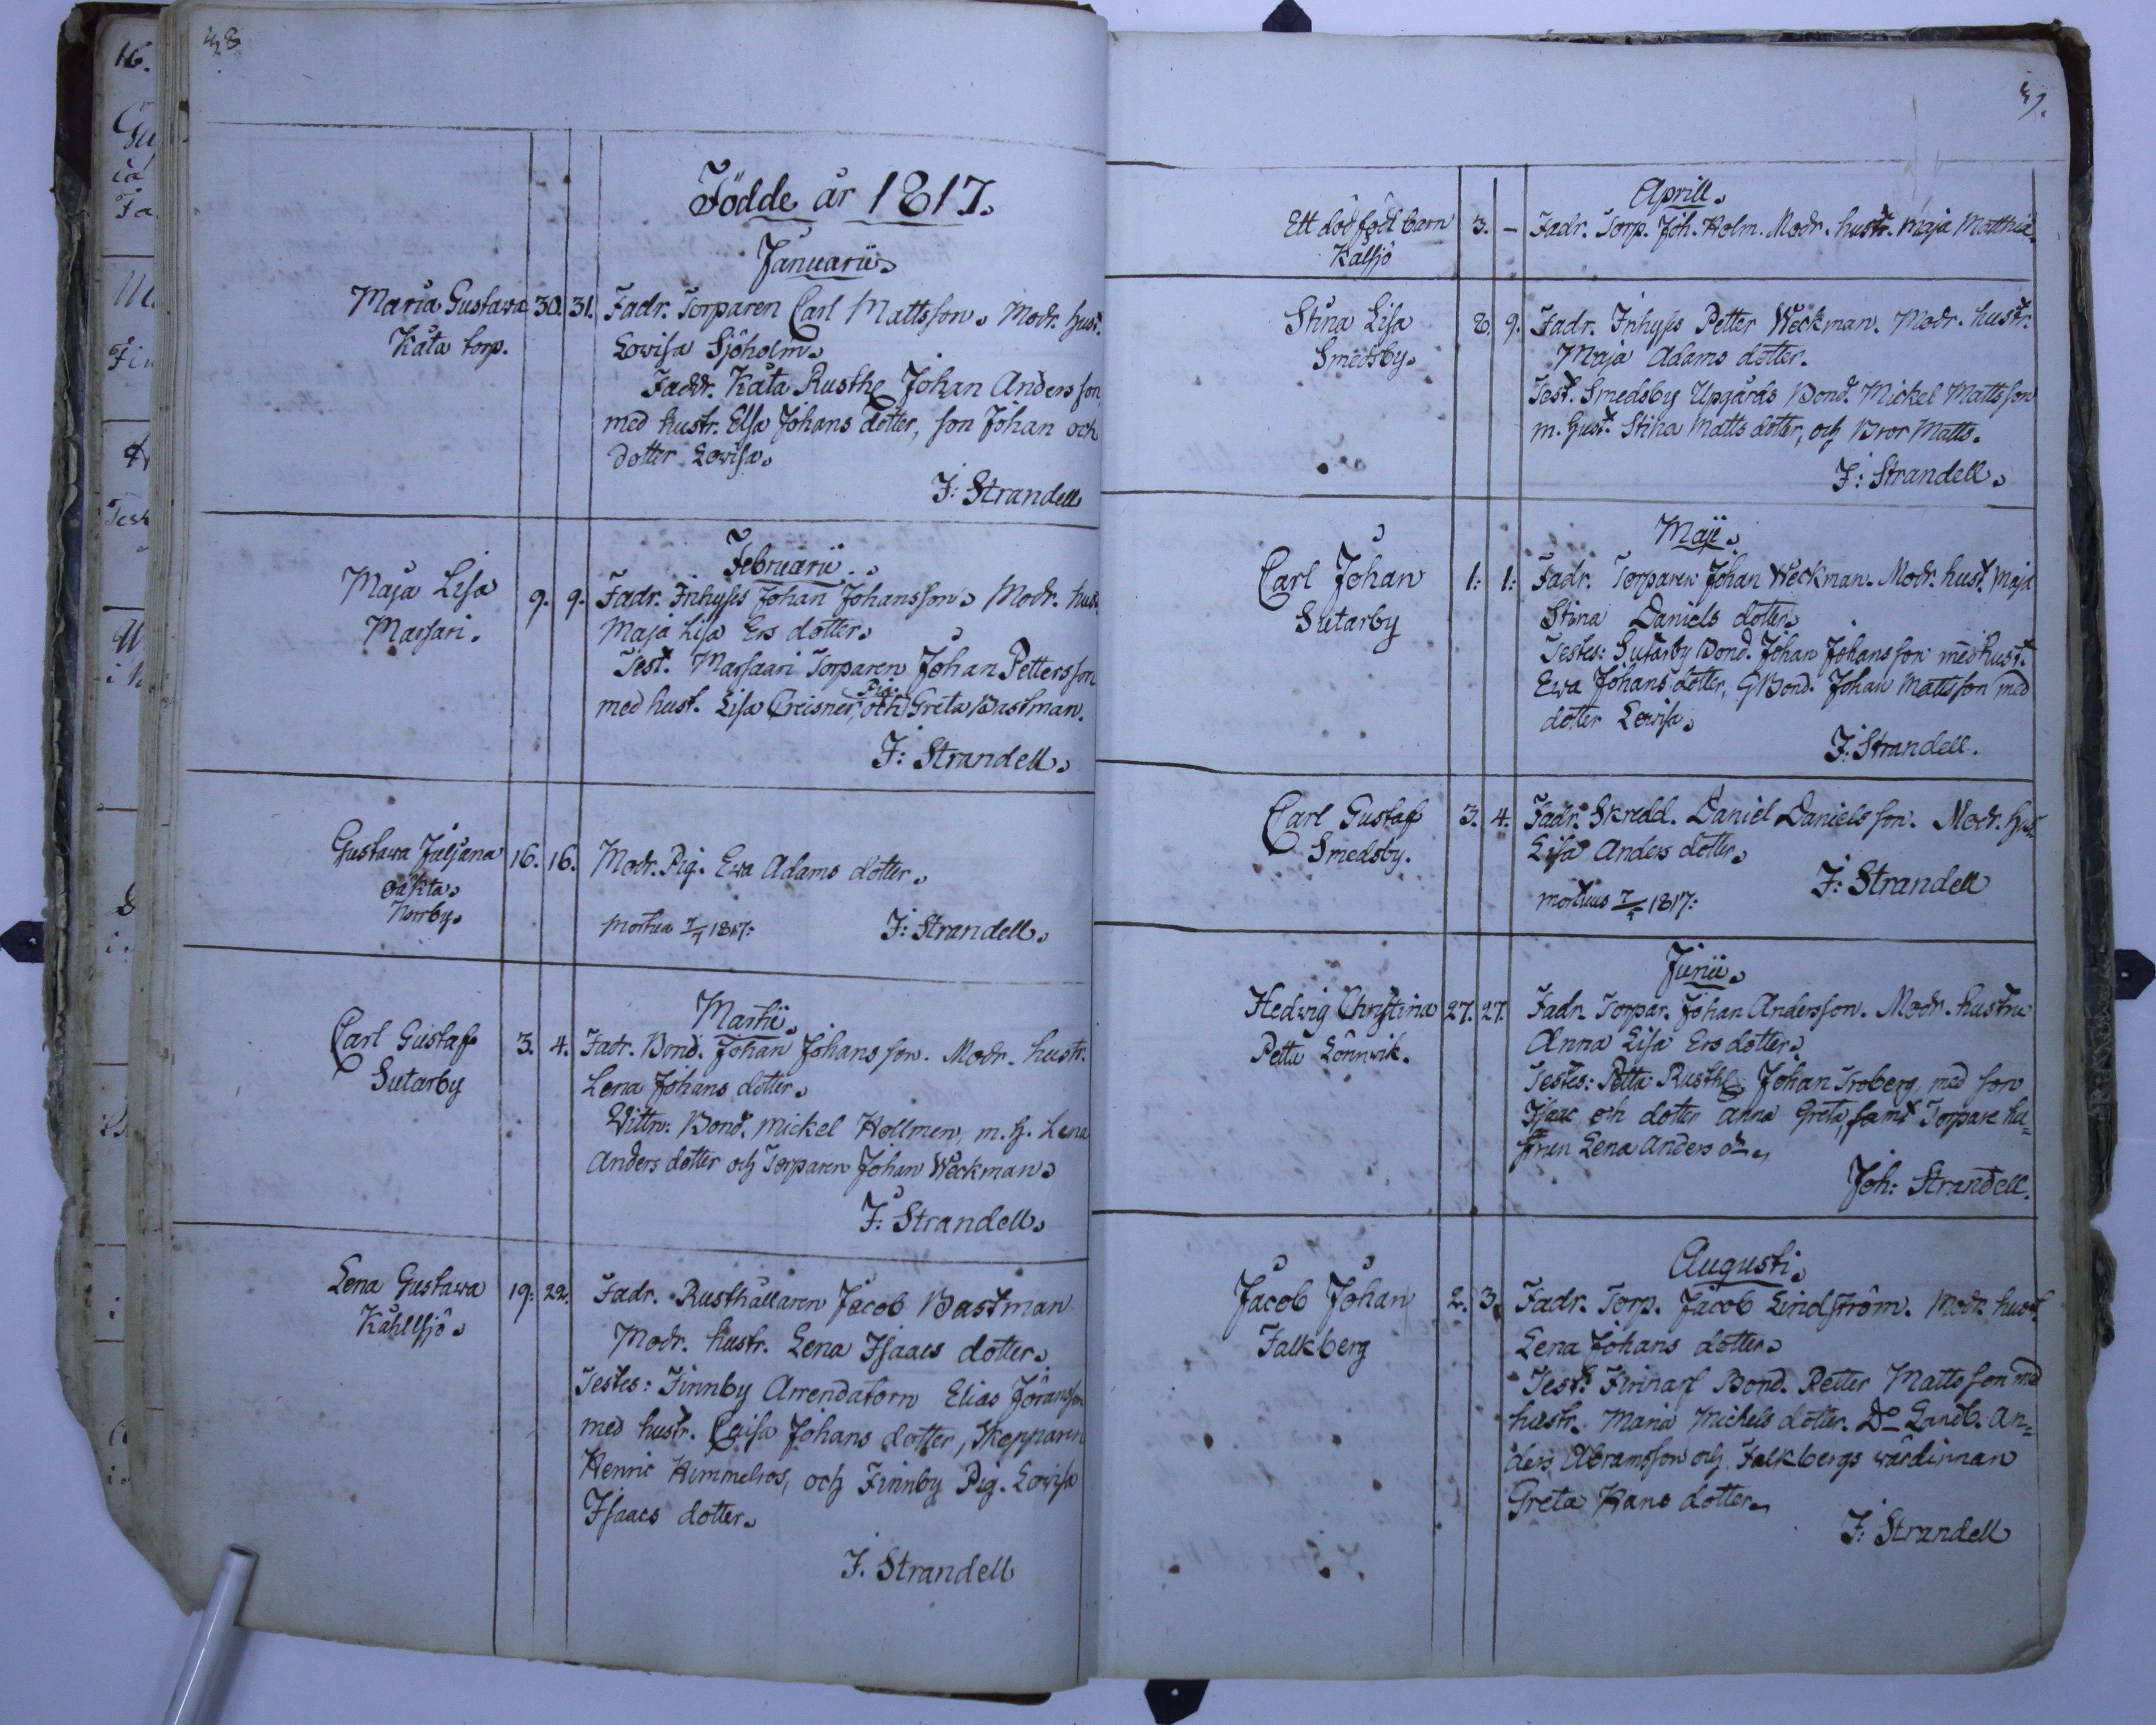 Födde år 1817.
Januarii
Maria Gustawa 30. 31. Fadr. Torparen Carl Mattsson. Modr. hust.
Kåta torp. Lowisa Sjöholm.
Faddr. Kåta Rusth. Johan Andersson
med hustr. Elsa Johans dotter, son Johan och
dotter Lowisa.
J: Strandell
Februarii.
Maja Lisa 9. 9. Fadr. Inhyses Johan Johansson. Modr. hus.
Marsari. Maja Lisa Ers dotter.
Test. Marsaari Torparen Johan Pettersson
med hust. Lisa Creisner, och Pig. Greta Bastman.
J: Strandell.
Gustawa Juljana 16. 16. Modr. Pig. Ewa Adams dotter.
oäkta.
Norrby.
mortua 7/4 1817: J: Strandell.
Martii.
Carl Gustaf 3. 4. Fadr. Bond. Johan Johansson. Modr. hustr.
Sutarby Lena Johans dotter.
Wittn: Bond. Mickel Hollmen, m. h. Lena
Anders dotter och Torparen Johan Weckman.
J: Strandell.
Lena Gustawa 19: 22. Fadr. Rusthållaren Jacob Bastman
Kåhllsjö. Modr. hustr. Lena Isaacs dotter.
Testes: Finnby Arrendatorn Elias Göransson
med hustr. Caisa Johans dotter, Skepparen
Henric Himmelros, och Finnby Pig. Lowisa
Isaacs dotter.
J. Strandell
Aprill.
Ett dödfödt barn 3. – Fadr. Torp. Joh. Holm. Modr. hustr. Maja
Kålsjö
Stina Lisa 8. 9. Fadr. Inhyses Petter Weckman. Modr. hustr.
Smedsby. Maja Adams dotter.
Test. Smedsby Upgårds Bond. Mickel Mattsson
m. hust. Stina Matts dotter, och Bror Matts.
J: Strandell.
Maji.
Carl Johan 1: 1: Fadr. Torparen Johan Weckman. Modr. hust. Maja
Sutarby Stina Daniels dotter
Testes: Sutarby Bond. Johan Johansson med hust.
Ewa Johans dotter, GBond. Johan Mattsson med
dotter Lowisa.
J: Strandell.
Carl Gustaf 3. 4. Fadr. Skredd. Daniel Danielsson. Modr. hus.
Smedsby. Lisa Anders dotter.
mortuus 1817: J: Strandell
Junii.
Hedwig Christina 27. 27. Fadr. Torpar. Johan Andersson. Modr. hustru
Petta Lönnwik. Anna Lisa Ers dotter.
Testes: Petta Rusth. Johan Troberg, med son
Isaac, och dotter Anna Greta, samt Torpare hu=
strun Lena Anders dr
Joh: Strandell.
Augusti.
Jacob Johan 2. 3. Fadr. Torp. Jacob Lindström. Modr. hust.
Falkberg Lena Johans dotter.
Test: Bond. Petter Mattsson med
hustr. Maria Michels dotter. Do Landb. An=
ders Abramsson och Falkbergs wärdinnan
Greta Hans dotter.
J: Strandell